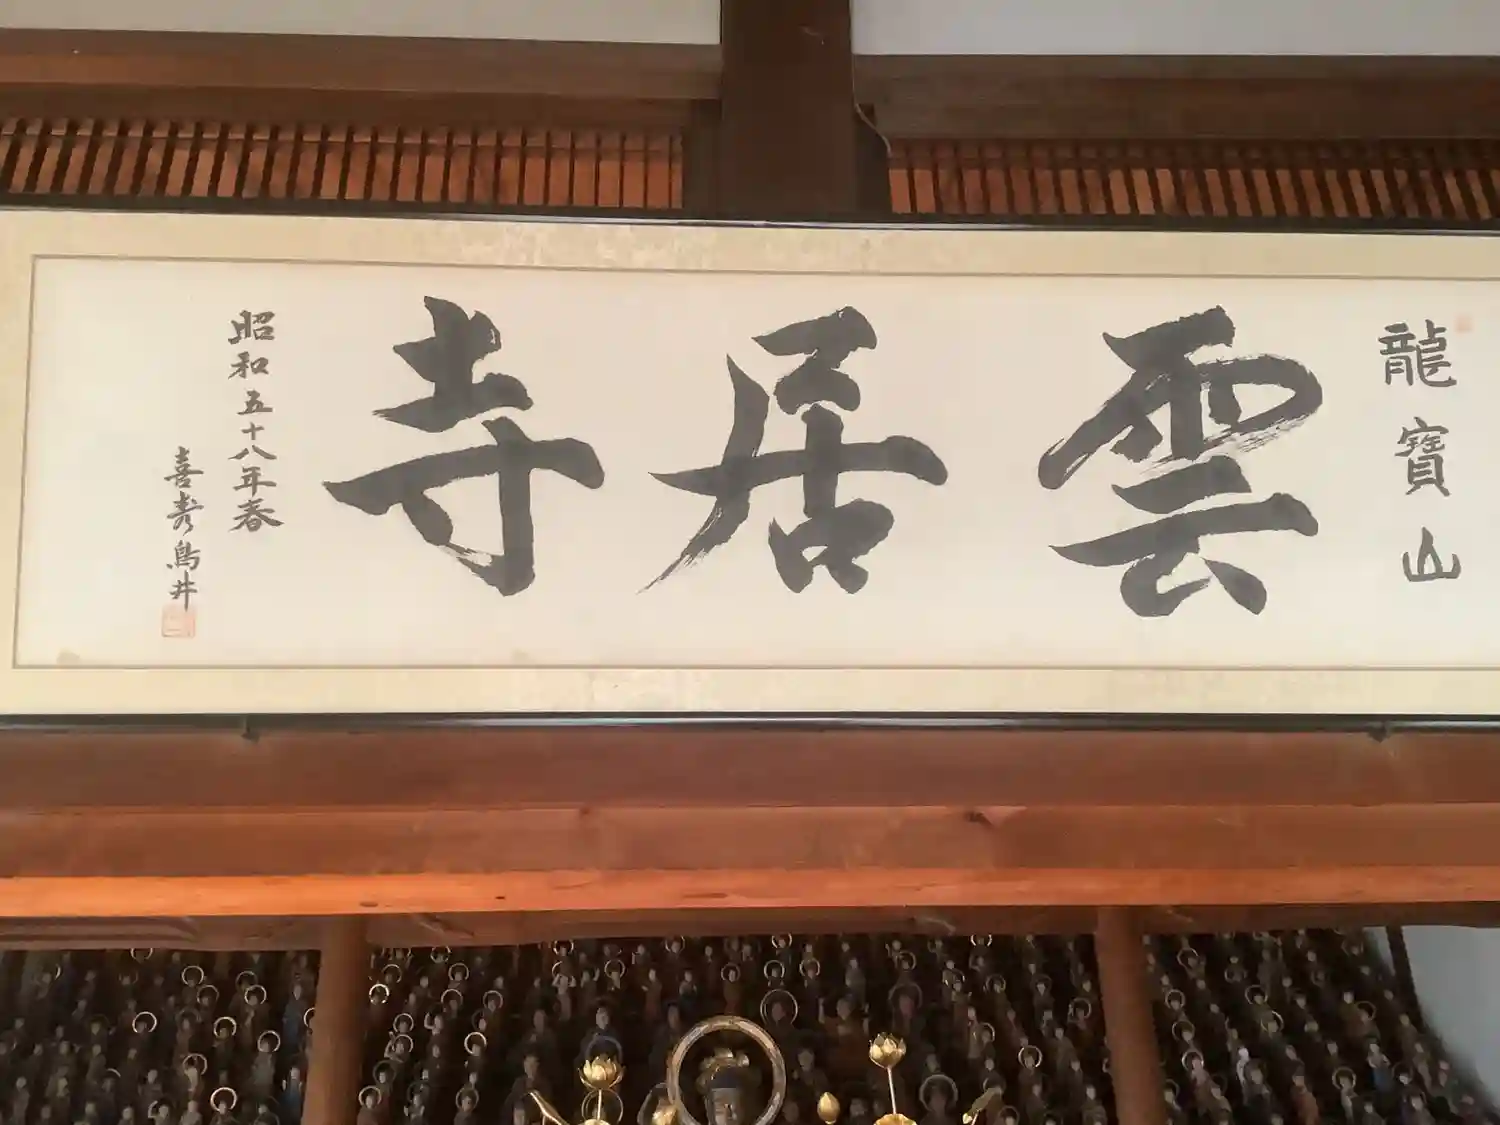 龍寶山
雲居寺
昭和五十八年春
喜寿鳥井